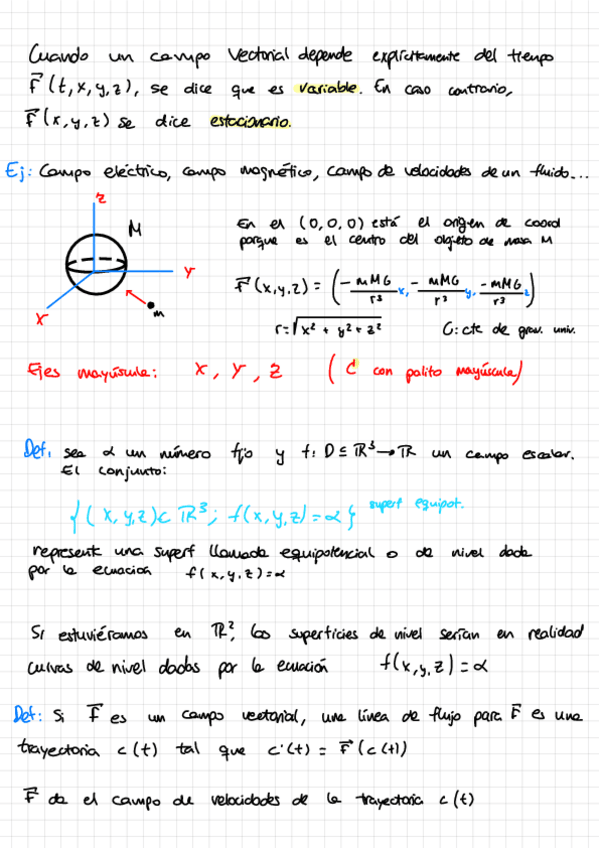 Cuando un campo vectorial depende explícitamente del tiempo
F⃗(t,x,y,z), se dice que es variable. En caso contrario,
F⃗(x,y,z) se dice estacionario.
Ej: Campo eléctrico, campo magnético, campo de velocidades de un fluido...
Z
M
Y
X
m
En el (0,0,0) está el origen de coord
porque es el centro del objeto de masa M
F⃗(x,y,z) = (-mMG/r³ x, -mMG/r³ y, -mMG/r³ z)
r=√x² + y² + z²
G: cte de grav. univ.
Ejes mayúscula: X, Y, Z ( C con palito mayúscula)
Def: sea α un número fijo y f: D ⊆ ℝ³→ℝ un campo escalar.
El conjunto:
{(x,y,z)⊂ ℝ³; f(x,y,z)=α} superf equipot.
representa una superf llamada equipotencial o de nivel dada
por la ecuación f(x,y,z)=α
Si estuviéramos en ℝ², las superficies de nivel serían en realidad
curvas de nivel dadas por la ecuación f(x,y,z)=α
Def: Si F⃗ es un campo vectorial, una línea de flujo para F⃗ es una
trayectoria c(t) tal que c'(t) = F⃗(c(t))
F⃗ da el campo de velocidades de la trayectoria c(t)